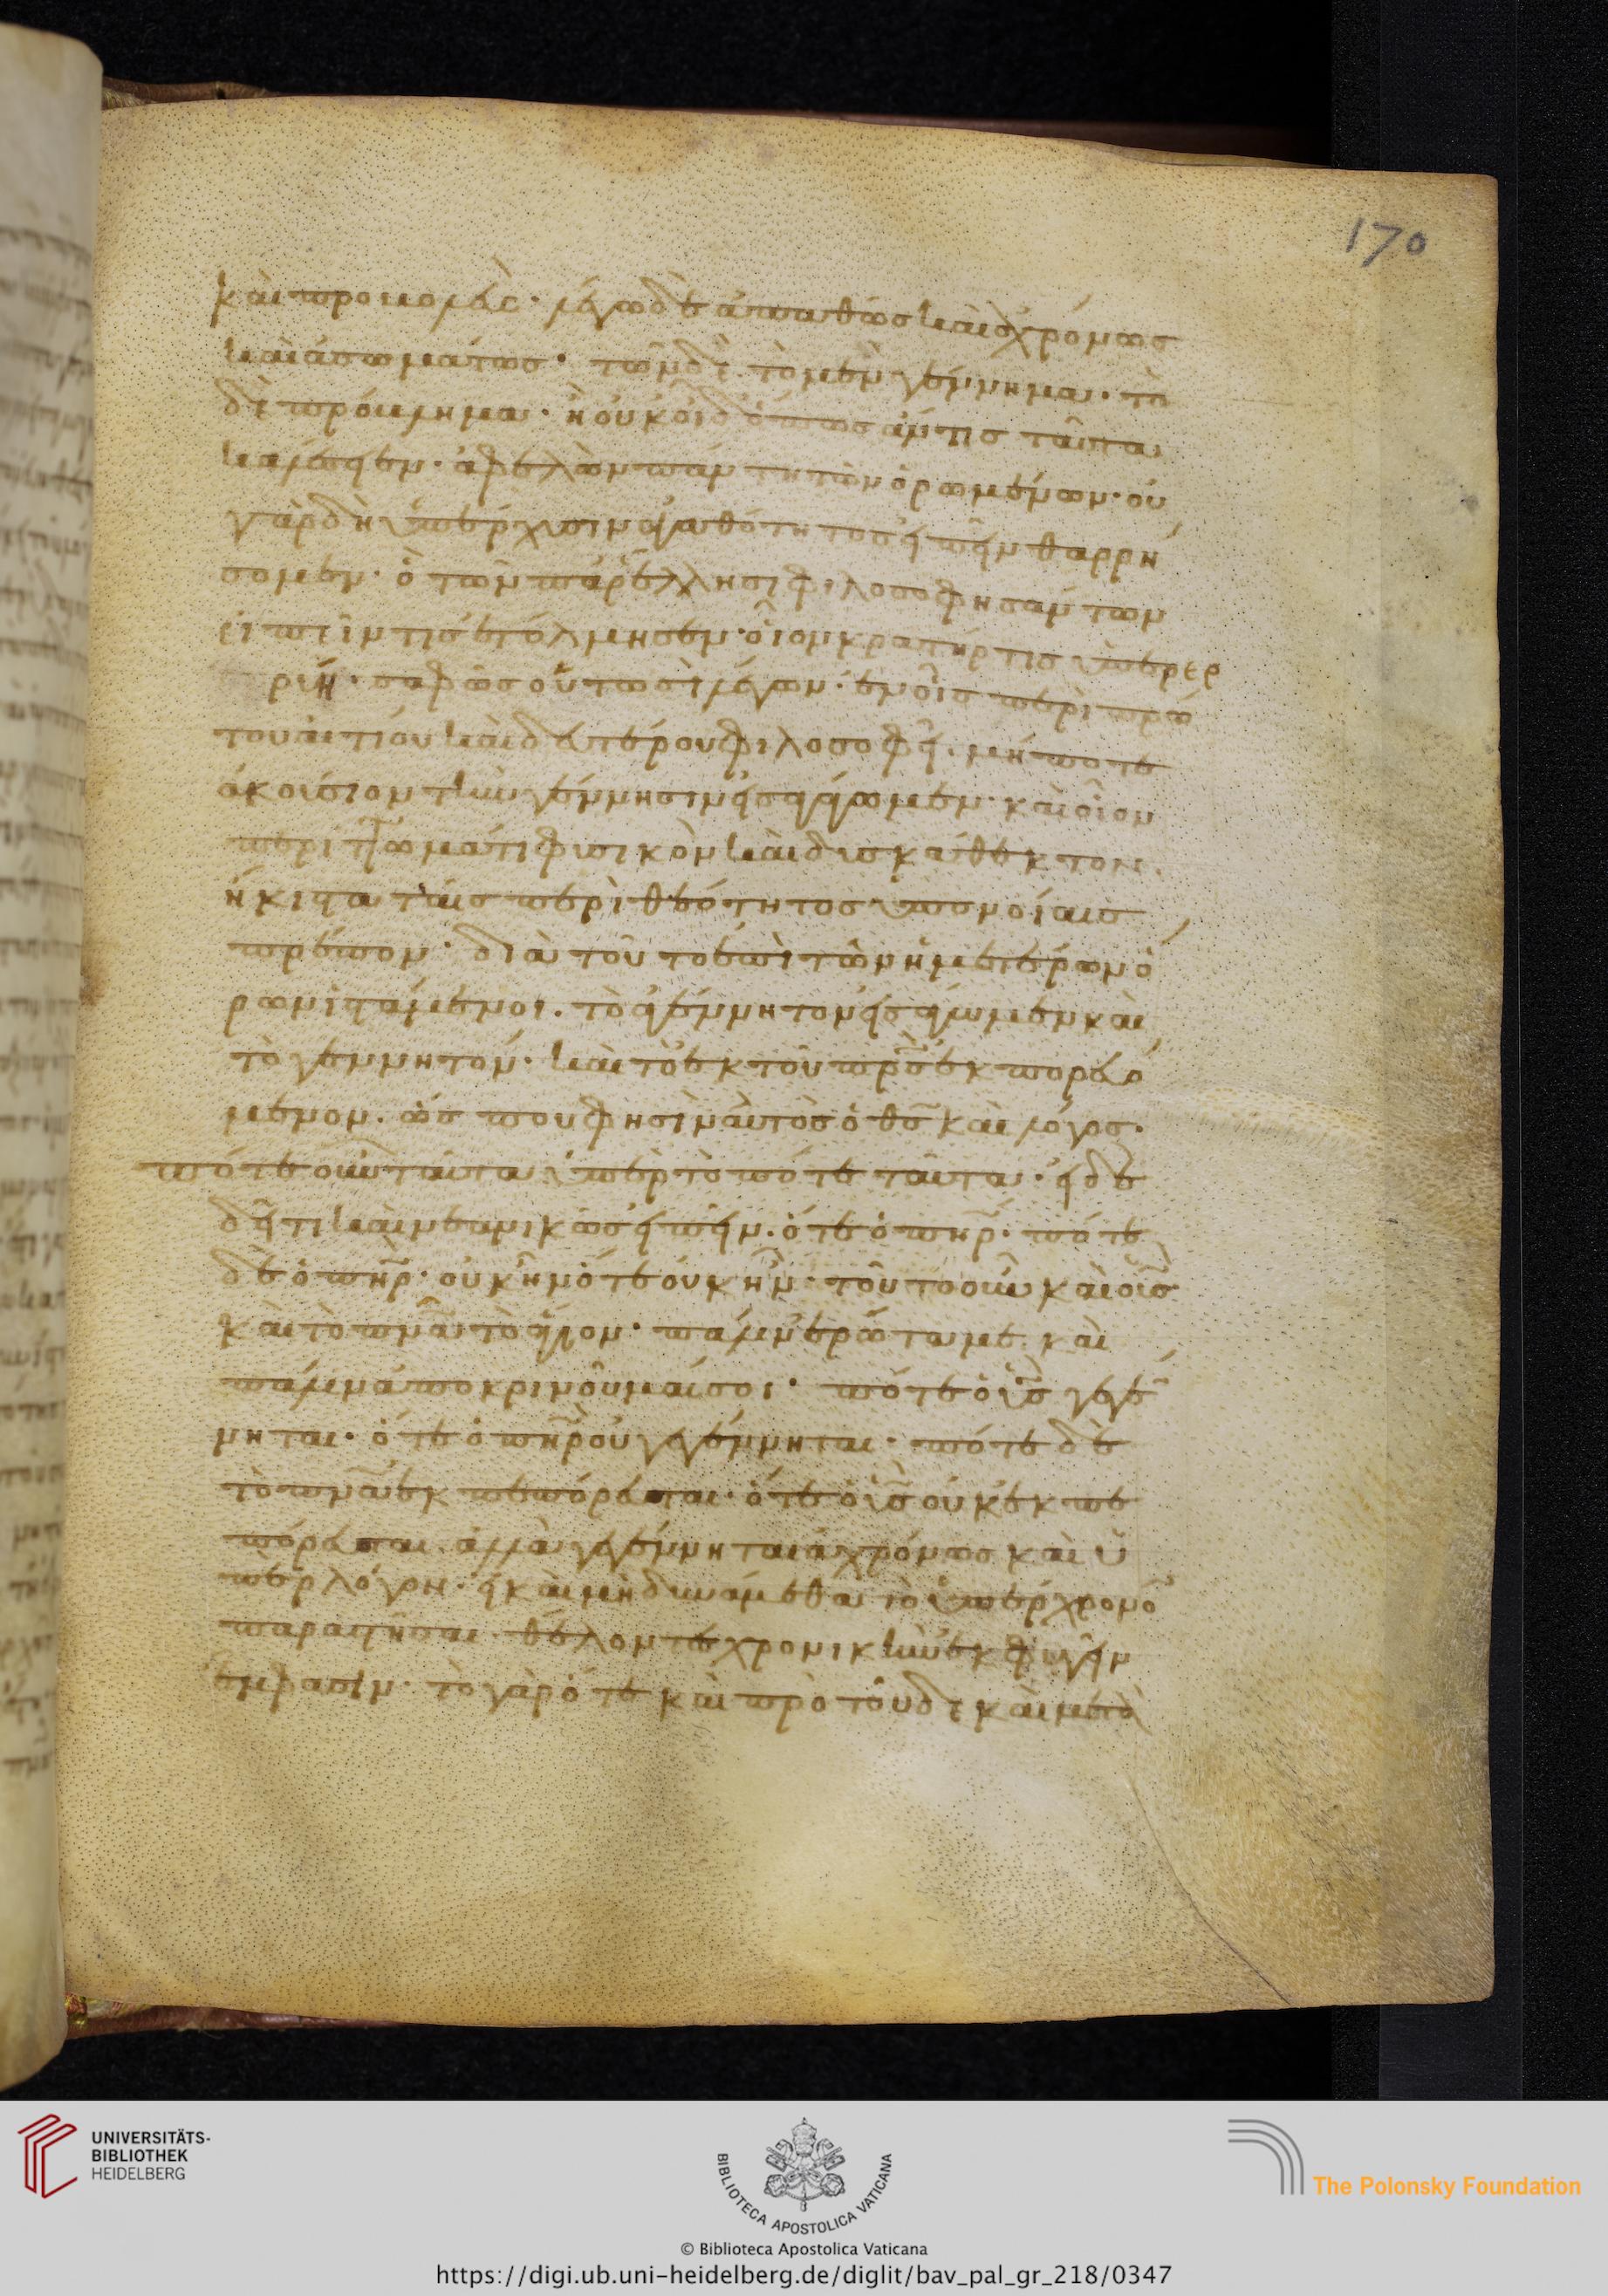 καὶ προβολεύς· λέγω δὲ ἀπαθῶς καὶ ἀχρόνως
καὶ ἀσωμάτως· τῶν δὲ, τὸ μὲν γέννημα· τὸ
δὲ πρόβλημα· ἢ οὐκ οἶδ' ὅπως ἄν τις ταῦτα
καλέσειεν· ἀφελὼν πάντη τῶν ὁρωμένων· οὐ
γὰρ δὴ ὑπέρχυσιν ἀγαθότητος εἰπεῖν θαρρή
σομεν· ὃ τῶν παρ' ἕλλησι φιλοσοφησάντων
εἰπεῖν τις ἐτόλμησεν· οἷον κρατήρ τις ὑπερερ
ρύη· σαφῶς οὑτωσὶ λέγων· ἐν οἷς περὶ πρώ
του αἰτίου καὶ δευτέρου φιλοσοφεῖ. μήποτε
ἀκούσιον τὴν γέννησιν εἰσαγάγωμεν· καὶ οἷον
περίττωμά τι φυσικὸν καὶ δυσκάθεκτον.
ἥκιστα ταῖς περὶ θεότητος ὑπονοίαις
πρέπον· διὰ τοῦτο ἐπὶ τῶν ἡμετέρων ὅ
ρων ἱστάμενοι. τὸ ἀγέννητον εἰσάγωμεν καὶ
τὸ γεννητόν· καὶ τὸ ἐκ τοῦ πρς ἐκπορευό
μενον. ὥς πού φησὶν αὐτὸς ὁ θς καὶ λόγος.
πότε οὖν ταῦτα ὑπὲρ τὸ πότε ταῦτα· εἰ δὲ
δεῖ τι καὶ νεανικῶς εἰπεῖν. ὅτε ὁ πηρ. πότε
δὲ ὁ πηρ· οὐκ ἦν ὅτε οὐκ ἦν· τοῦτο οὖν καὶ ὁ υς
καὶ τὸ πνα τὸ ἅγιον· πάλιν ἐρώτα με. καὶ
πάλιν ἀποκρινοῦμαί σοι· πότε ὁ υς γεγέν
νηται· ὅτε ὁ πηρ οὐ γεγέννηται· πότε δὲ
τὸ πνα ἐκπεπόρευται· ὅτε ὁ υς οὐκ ἐκπε
πόρευται. ἀλλὰ γεγέννηται ἀχρόνως καὶ ὑ
πὲρ λόγον· εἰ καὶ μὴ δυνάμεθα τὸ ὑπὲρ χρόνον
παραστῆσαι. θέλοντες χρονικὴν ἐκφυγεῖν
ἔμφασιν. τὸ γὰρ ὅτε καὶ πρὸ τοῦδε καὶ μετὰ
170
UNIVERSITÄTS-
BIBLIOTHEK
HEIDELBERG
BIBLIOTECA APOSTOLICA VATICANA
The Polonsky Foundation
© Biblioteca Apostolica Vaticana
https://digi.ub.uni-heidelberg.de/diglit/bav_pal_gr_218/0347